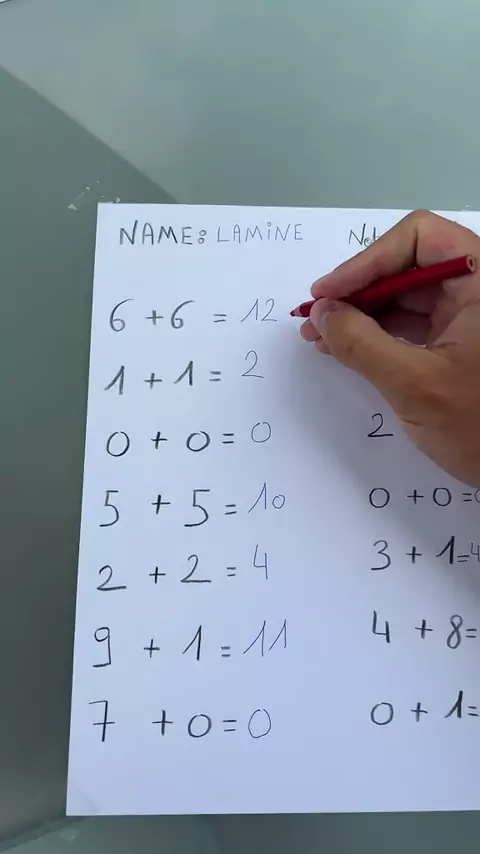 NAME: LAMINE
6 + 6 = 12
1 + 1 = 2
0 + 0 = 0
5 + 5 = 10
2 + 2 = 4
9 + 1 = 11
7 + 0 = 0
2
0 + 0 =
3 + 1 = 4
4 + 8 =
0 + 1 =